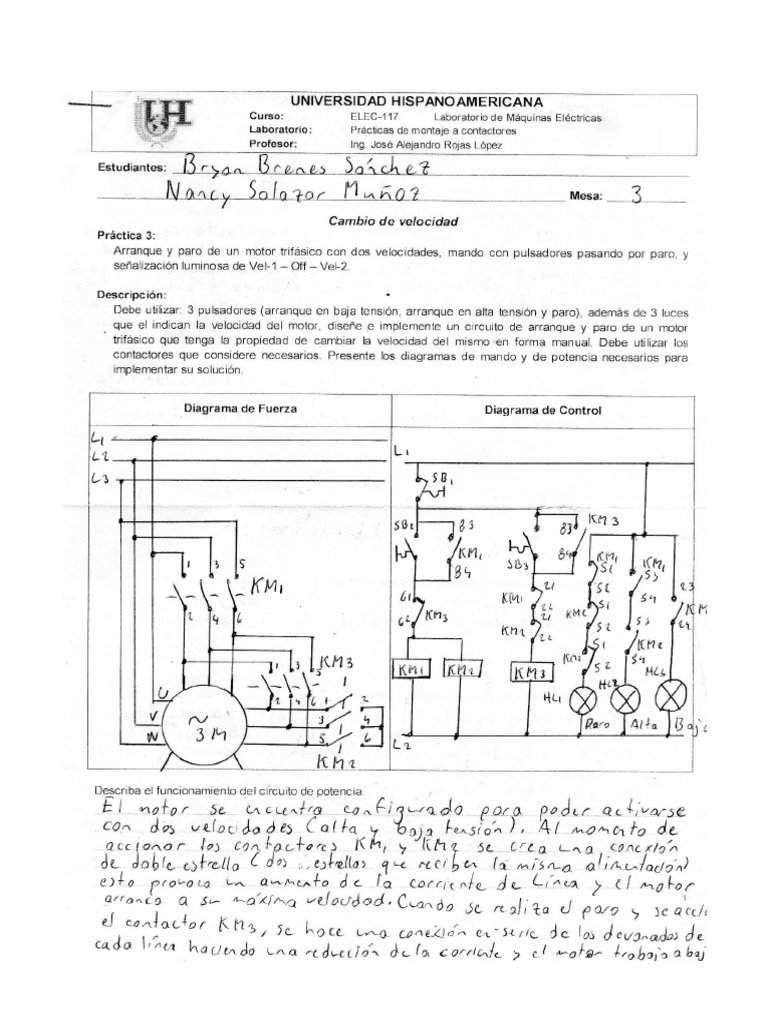 UNIVERSIDAD HISPANOAMERICANA
UH
Curso: ELEC-117 Laboratorio de Máquinas Eléctricas
Laboratorio: Prácticas de montaje a contactores
Profesor: Ing. José Alejandro Rojas López
Estudiantes: Bryan Brenes Sánchez
Nancy Salazar Muñoz Mesa: 3
Cambio de velocidad
Práctica 3:
Arranque y paro de un motor trifásico con dos velocidades, mando con pulsadores pasando por paro, y
señalización luminosa de Vel-1 – Off – Vel-2.
Descripción:
Debe utilizar: 3 pulsadores (arranque en baja tensión, arranque en alta tensión y paro), además de 3 luces
que el indican la velocidad del motor, diseñe e implemente un circuito de arranque y paro de un motor
trifásico que tenga la propiedad de cambiar la velocidad del mismo en forma manual. Debe utilizar los
contactores que considere necesarios. Presente los diagramas de mando y de potencia necesarios para
implementar su solución.
Diagrama de Fuerza
L1
L2
L3
1 3 5
KM1
2 4 6
KM3
1 3 5
2 4 6
1 2
3 4
5 6
KM2
U
V
W
~
3 M
Diagrama de Control
L1
SB1
SB2 83
KM1
84
61
62 KM3
KM1 KM2
SB3
83 KM3
84
KM1 21
22
KM2 21
22
KM3
KM1 51
52
KM2 51
52
KM3 51
52
HL1
Paro
KM1 53
54
KM2
54
HL2
Alta
23
KM
24
HL3
Baja
L2
Describa el funcionamiento del circuito de potencia
El motor se encuentra configurado para poder activarse
con dos velocidades (alta y baja tensión). Al momento de
accionar los contactores KM1 y KM2 se crea una conexión
de doble estrella (dos estrellas que reciben la misma alimentación)
esto provoca un aumento de la corriente de Línea y el motor
arranca a su máxima velocidad. Cuando se realiza el paro y se acci
el contactor KM3, se hace una conexión en serie de los devanados de
cada línea haciendo una reducción de la corriente y el motor trabaja a baj